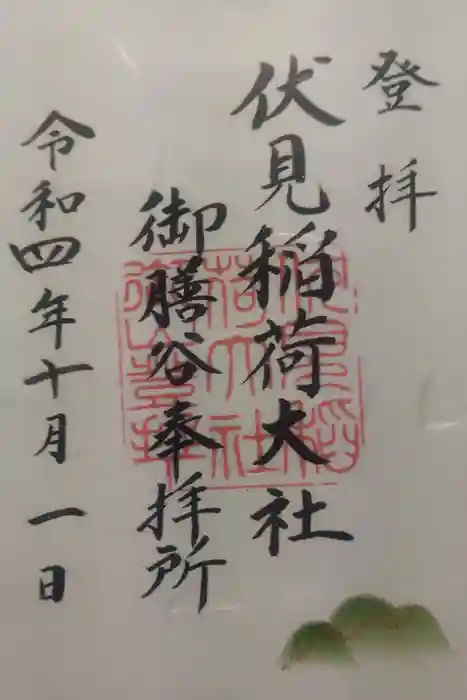 登拝
伏見稲荷大社
御膳谷奉拝所
令和四年十月一日